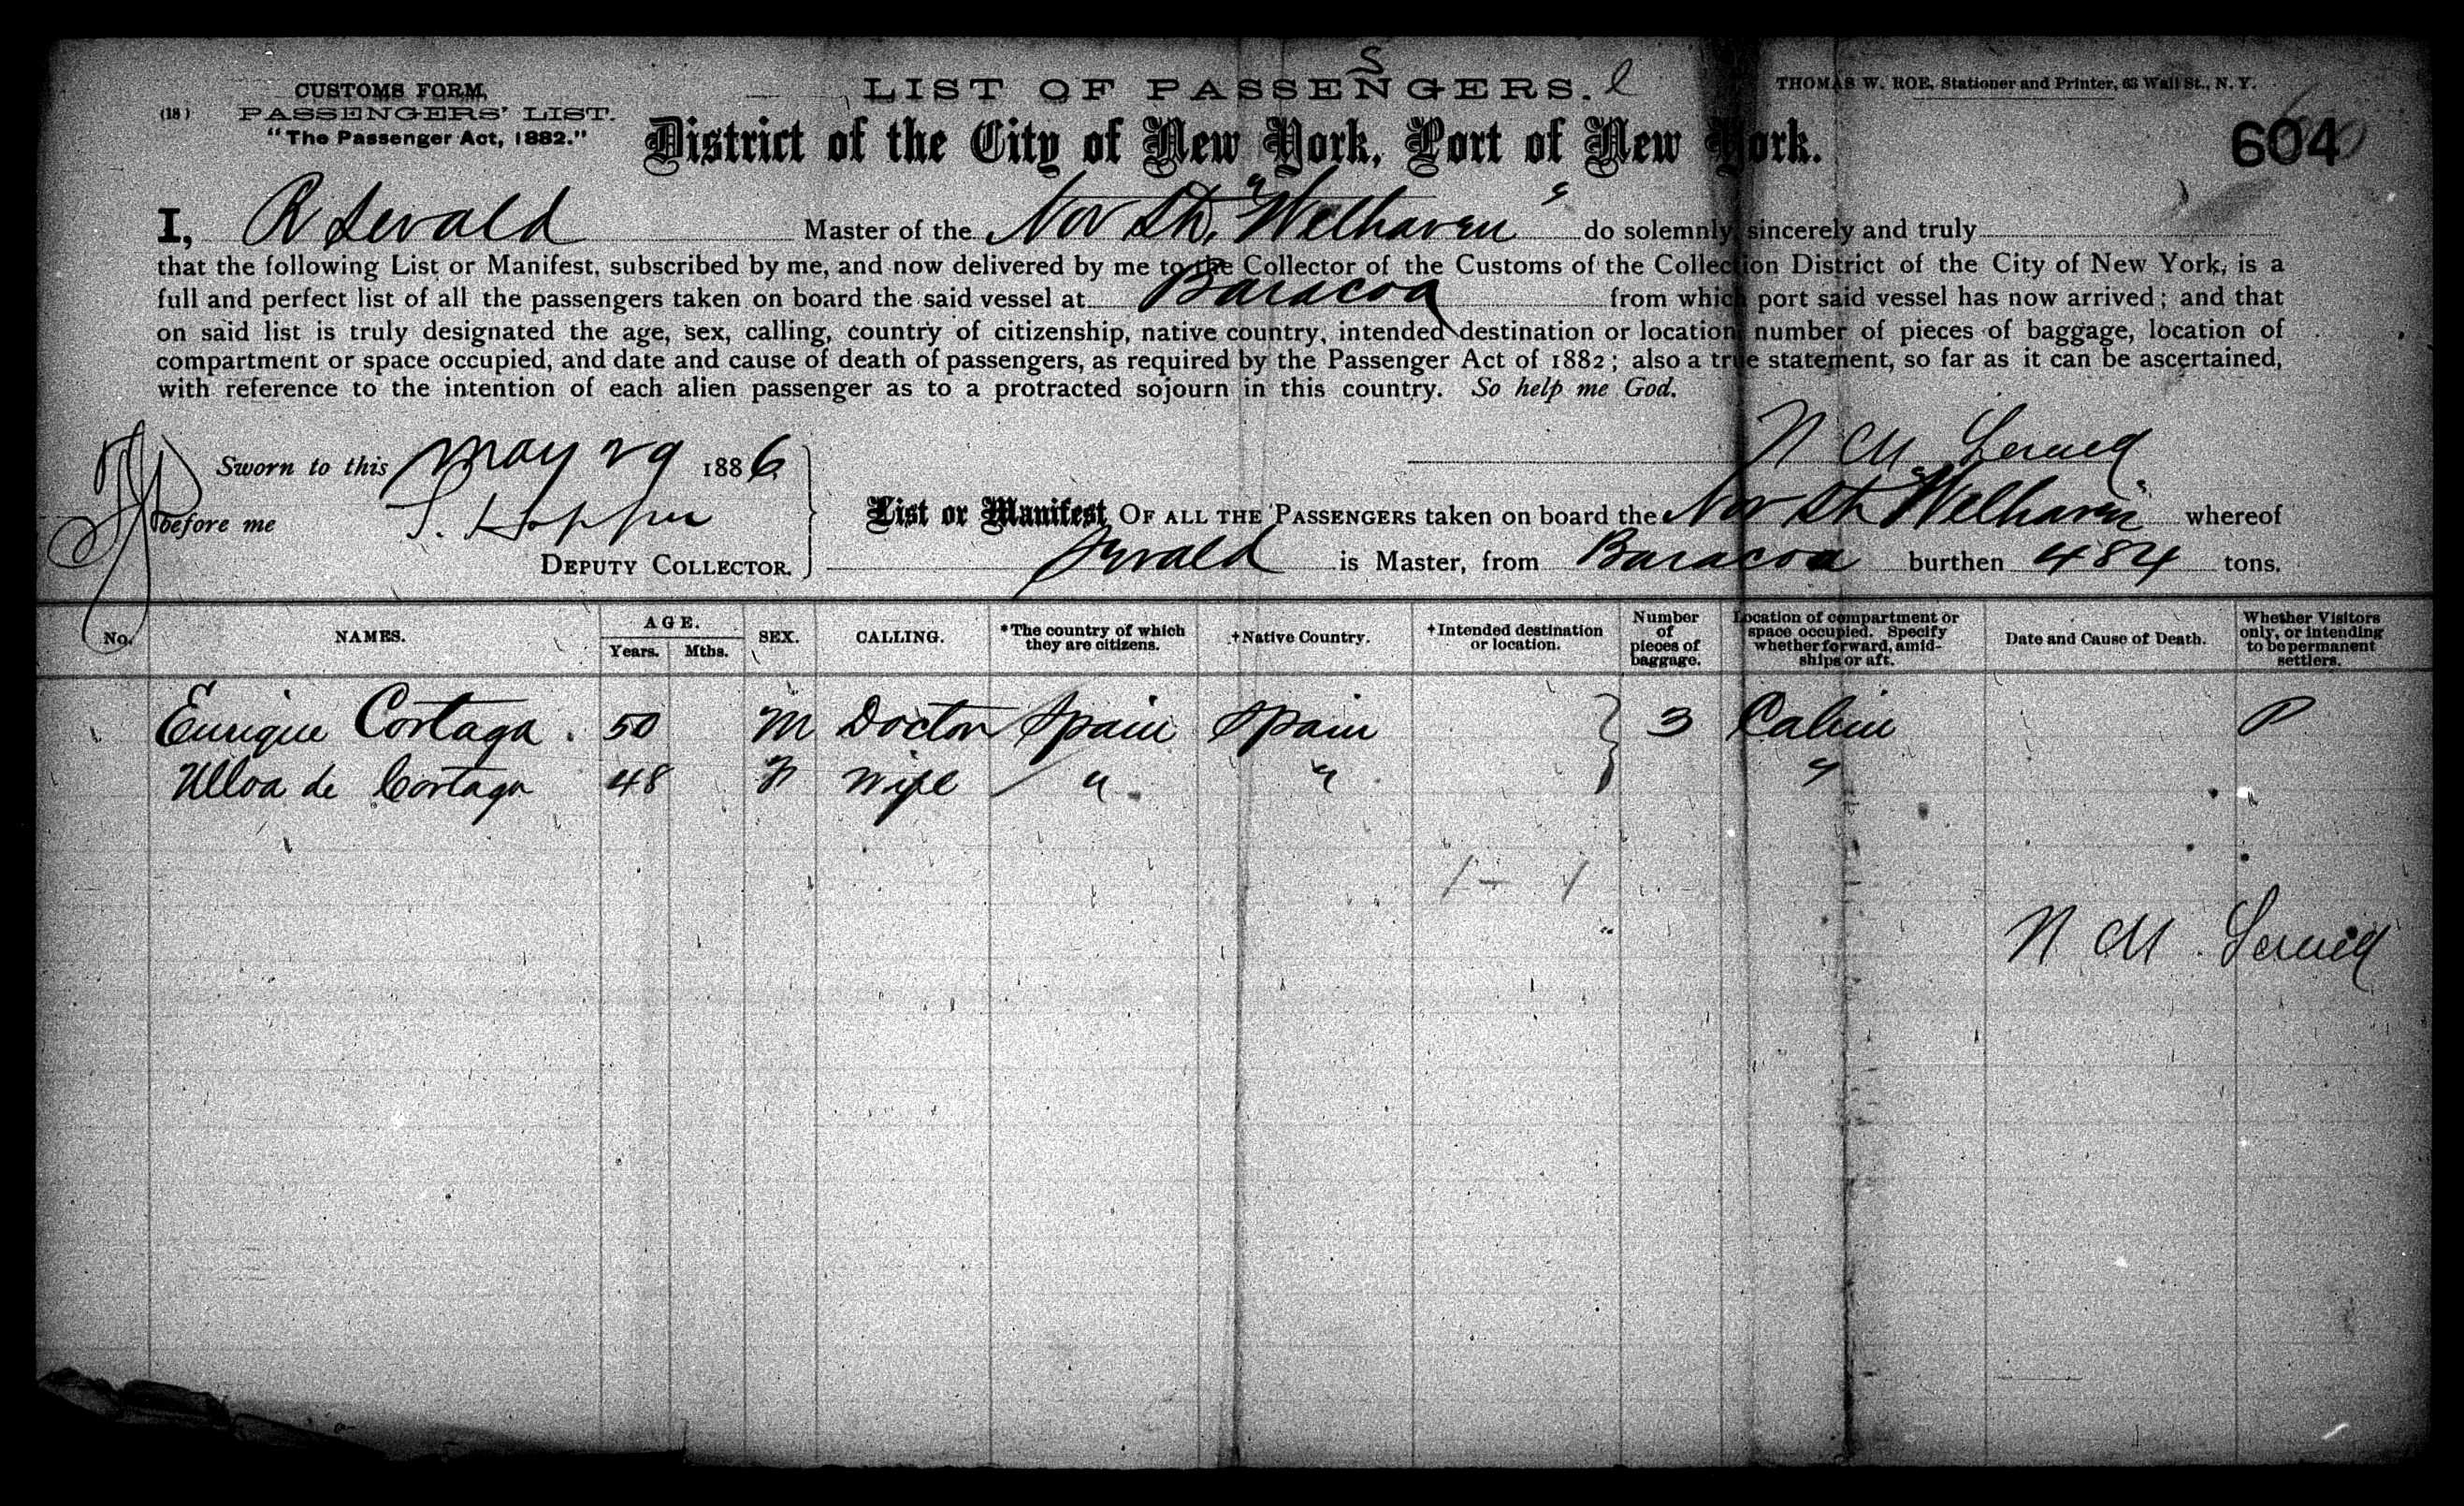 S
CUSTOMS FORM,
(18) PASSENGERS' LIST.
"The Passenger Act, 1882."
LIST OF PASSENGERS.
THOMAS W. ROE, Stationer and Printer, 63 Wall St., N. Y.
District of the City of New York, Port of New York.
604
I, Master of the Nor Str. "Welhaven" do solemnly, sincerely and truly
that the following List or Manifest, subscribed by me, and now delivered by me to the Collector of the Customs of the Collection District of the City of New York, is a
full and perfect list of all the passengers taken on board the said vessel at Baracoa from which port said vessel has now arrived; and that
on said list is truly designated the age, sex, calling, country of citizenship, native country, intended destination or location, number of pieces of baggage, location of
compartment or space occupied, and date and cause of death of passengers, as required by the Passenger Act of 1882; also a true statement, so far as it can be ascertained,
with reference to the intention of each alien passenger as to a protracted sojourn in this country. So help me God.
N M
Sworn to this May 29 1886
before me
DEPUTY COLLECTOR.
List or Manifest OF ALL THE PASSENGERS taken on board the Nor Str "Welhaven" whereof
is Master, from Baracoa burthen 484 tons.
No. NAMES. AGE. Years. Mths. SEX. CALLING. *The country of which they are citizens. +Native Country. +Intended destination or location. Number of pieces of baggage. Location of compartment or space occupied. Specify whether forward, amidships or aft. Date and Cause of Death. Whether Visitors only, or intending to be permanent settlers.
Enrique Cortaga. 50 M Doctor Spain Spain } 3 Cabin P
Ulloa de Cortaga 48 F Wife " " "
N M